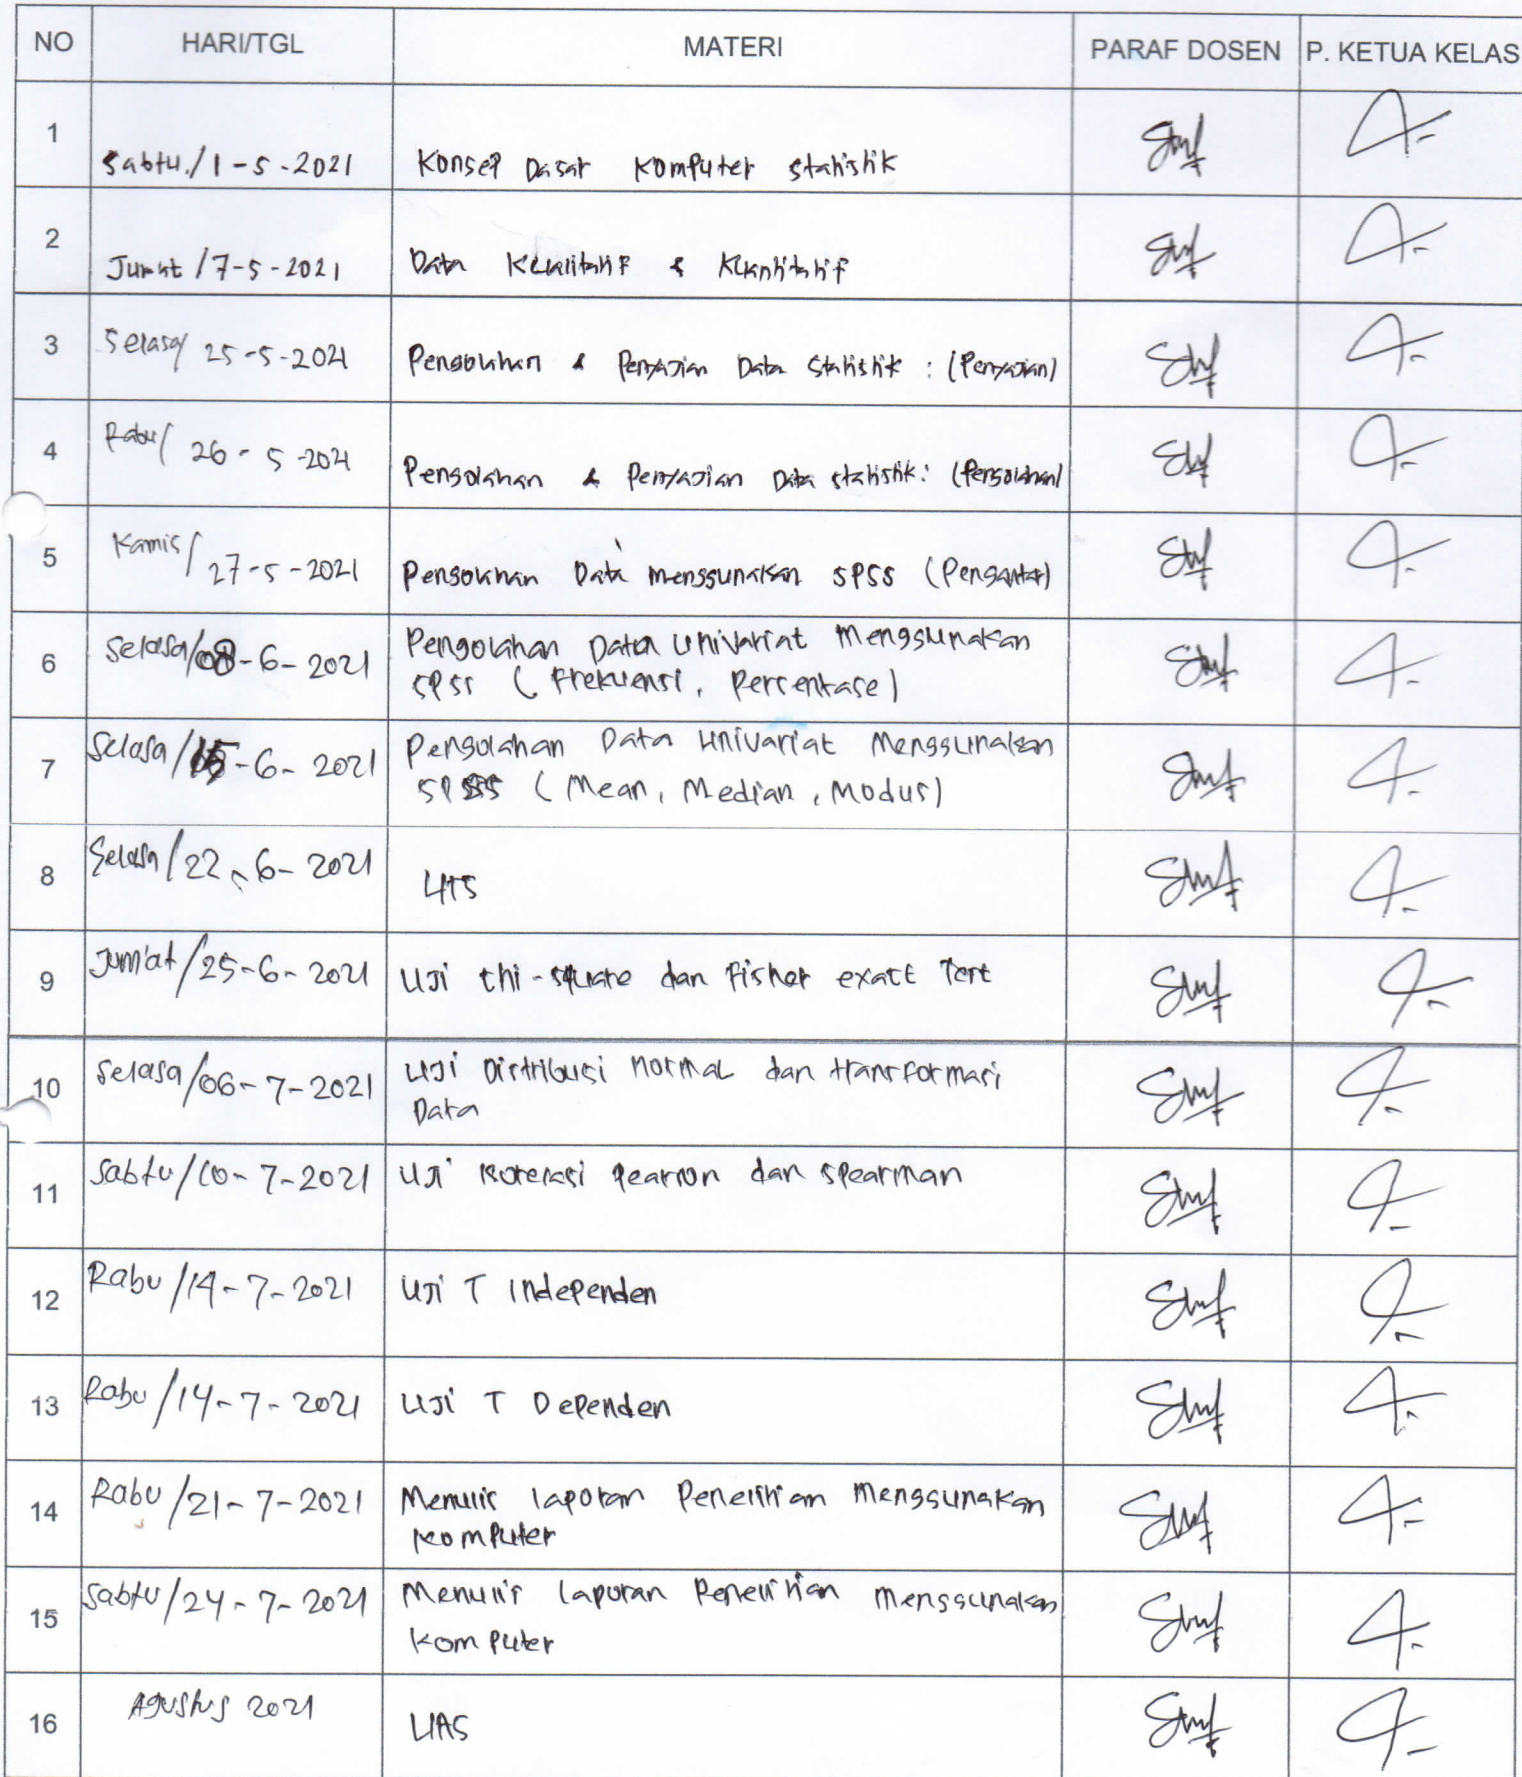 NO HARI/TGL MATERI PARAF DOSEN P. KETUA KELAS
1 Sabtu./1-5-2021 Konsep Dasar Komputer Statistik
2 Jumat/7-5-2021 Data Kualitatif & Kuantitatif
3 Selasa/ 25-5-2021 Pengolahan & Penyajian Data Statistik : (Penyajian)
4 Rabu/ 26-5-2021 Pengolahan & Penyajian Data Statistik: (Pengolahan)
5 Kamis/ 27-5-2021 Pengolahan Data menggunakan SPSS (Pengantar)
6 Selasa/08-6-2021 Pengolahan Data Univariat Menggunakan
SPSS (Frekuensi, Percentase)
7 Selasa/15-6-2021 Pengolahan Data Univariat Menggunakan
SPSS (Mean, Median, Modus)
8 Selasa/22-6-2021 UTS
9 Jum'at/25-6-2021 Uji Chi-square dan Fisher exact Test
10 Selasa/06-7-2021 Uji Distribusi Normal dan transformasi
Data
11 Sabtu/10-7-2021 Uji Korelasi Pearson dan Spearman
12 Rabu/14-7-2021 Uji T Independen
13 Rabu/14-7-2021 Uji T Dependen
14 Rabu/21-7-2021 Menulis laporan Penelitian Menggunakan
Komputer
15 Sabtu/24-7-2021 Menulis laporan Penelitian Menggunakan
Komputer
16 Agustus 2021 UAS